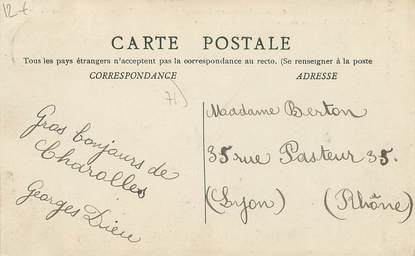 12-f.
CARTE POSTALE
Tous les pays étrangers n'acceptent pas la correspondance au recto. (Se renseigner à la poste
CORRESPONDANCE
ADRESSE
71
Gros bonjours de
Charolles
Georges Dieu
Madame Berton
35 rue Pasteur 35.
(Lyon) (Rhône)